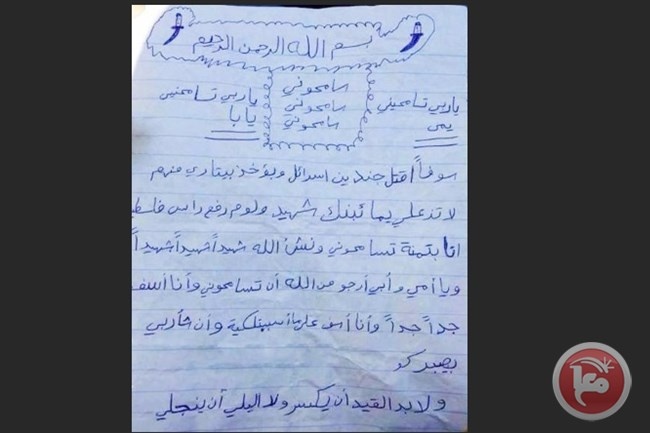 بسم الله الرحمن الرحيم
ياربي تسامحيني
يمى
سامحوني
سامحوني
سامحوني
ياربي تسامحني
يابا
سوفاً اقتل جند بين اسرائل وبؤخذ بيتاري منهم
لا تزعلي يما ئبنك شهيد ولوم رفع راس فلسط
انا بتمنة تسامحوني ونش الله شهيداً شهيداً شهيداً
ويا أمي وأبي أرجو من الله أن تسامحوني وأنا أسف
جداً جداً وأنا أسف على وأن شأربي
يصبركو
ولابد القيد أن يكسر ولا اليلي أن ينجلي
معا